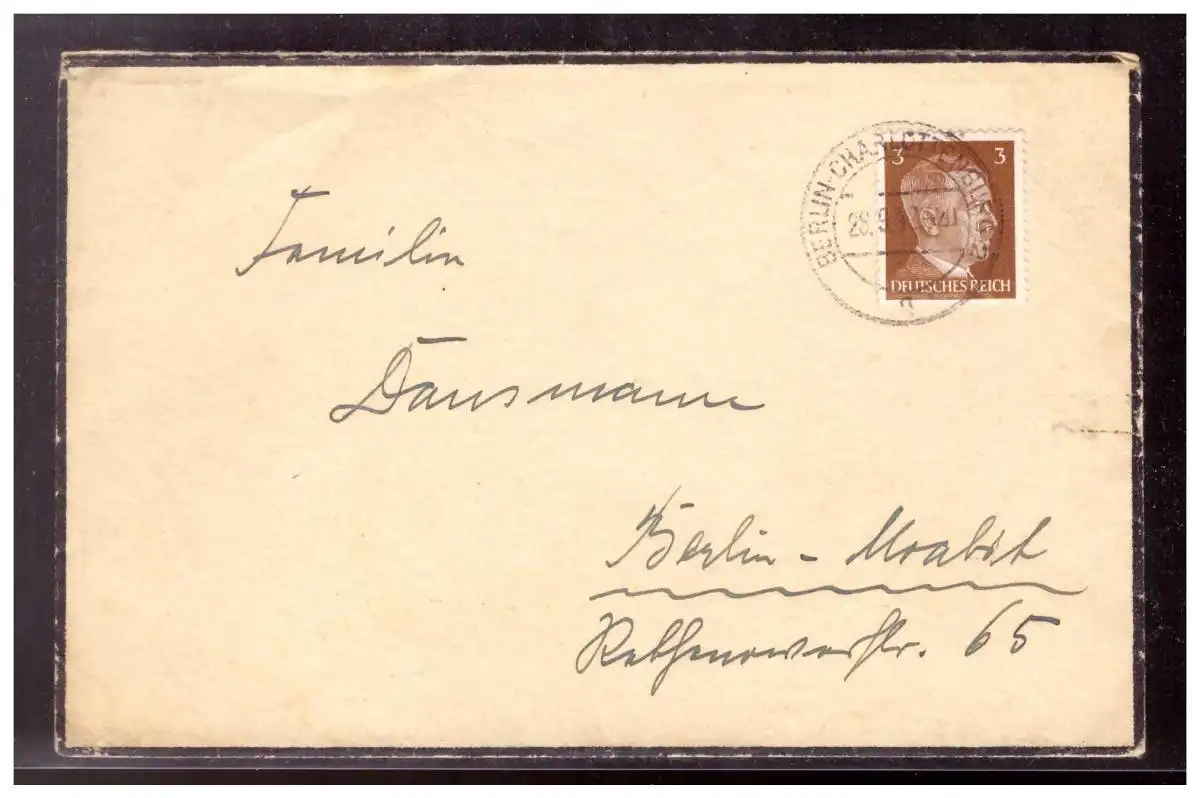 3 3
BERLIN-CHARLOTTENBURG 2
DEUTSCHES REICH
Familie
Dausmann
Berlin - Moabit
Rathenowerstr. 65